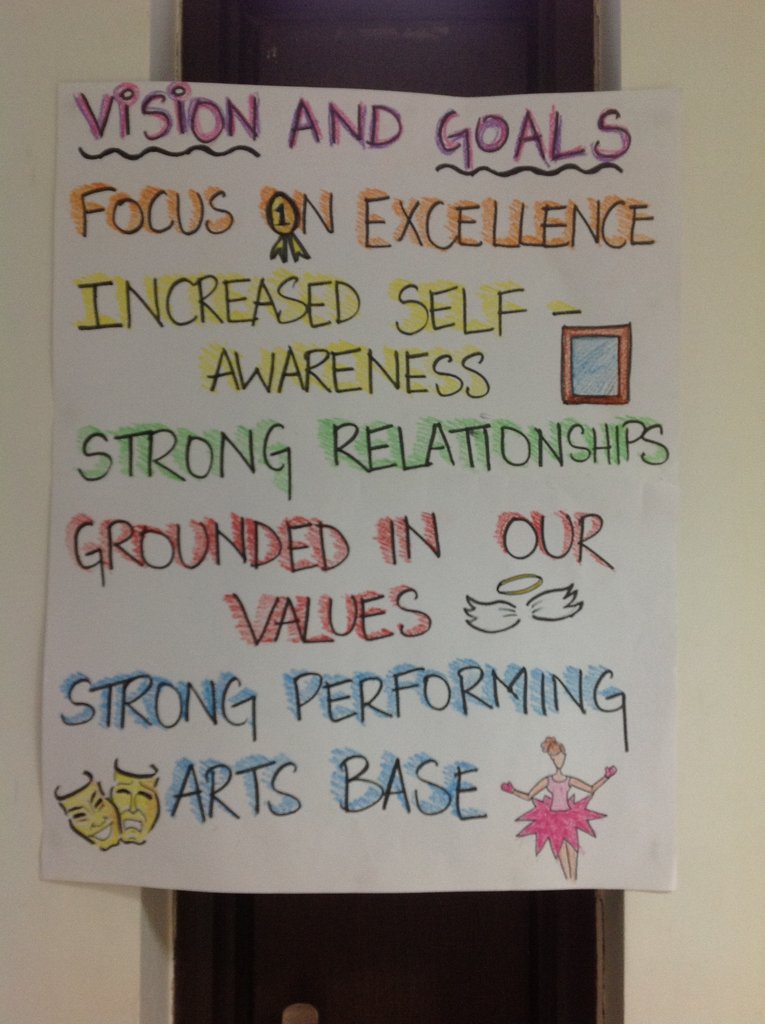 VISION AND GOALS
FOCUS ON EXCELLENCE
INCREASED SELF -
AWARENESS
STRONG RELATIONSHIPS
GROUNDED IN OUR
VALUES
STRONG PERFORMING
ARTS BASE